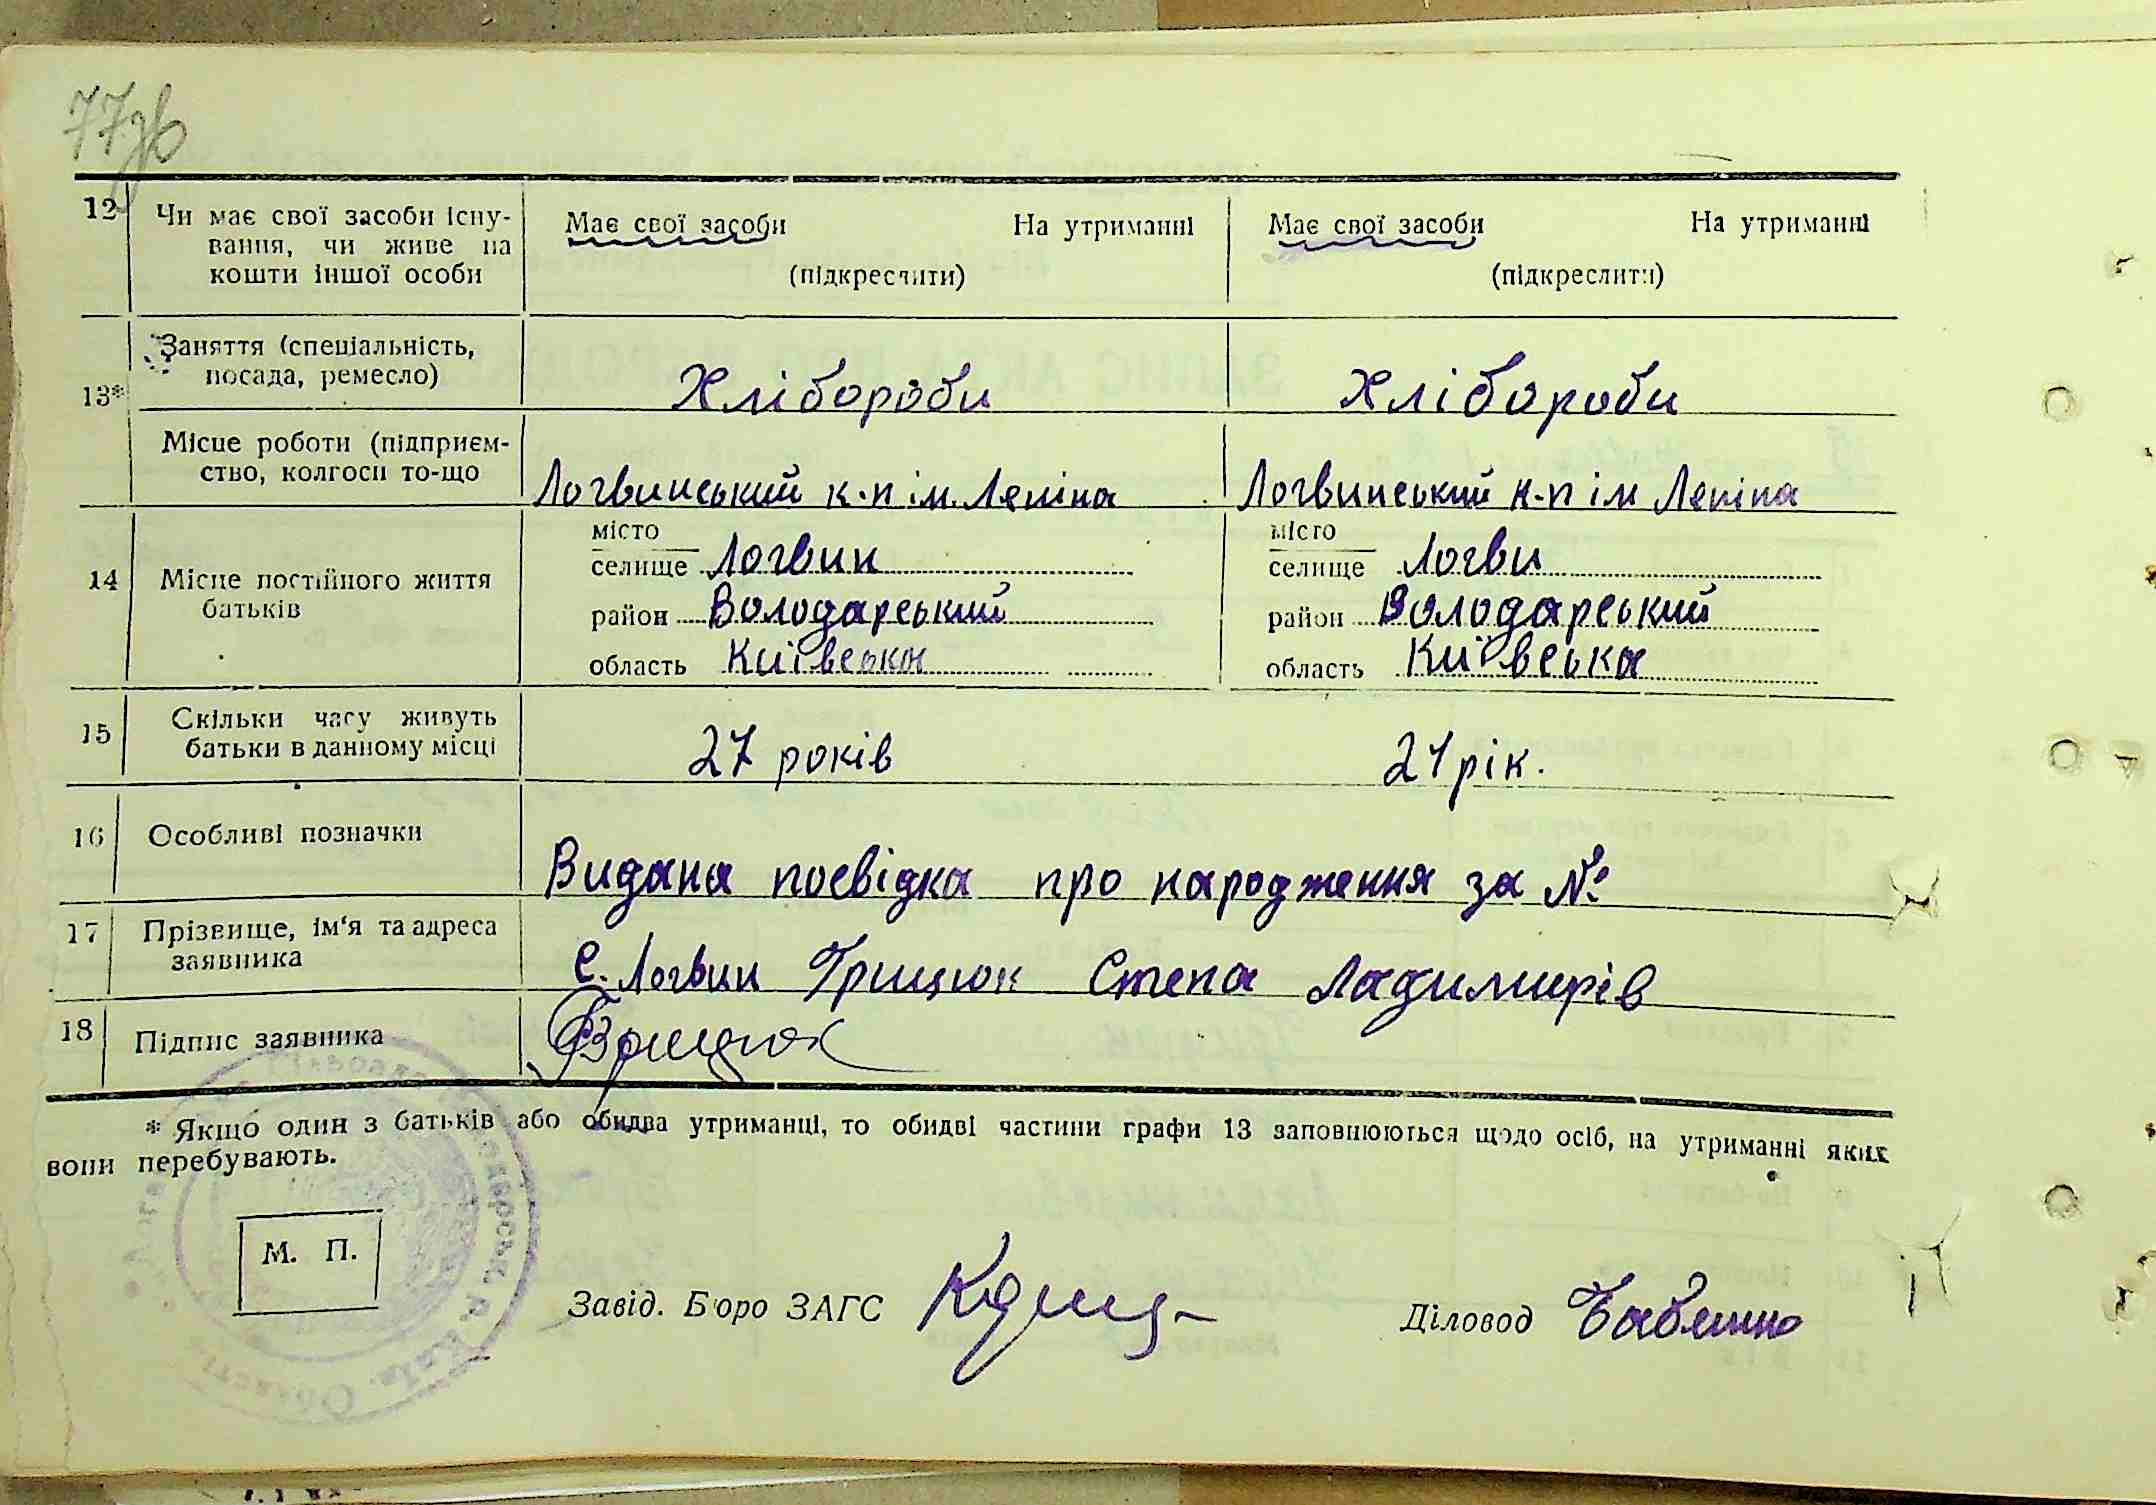 77зв
12 Чи має свої засоби існу-
вання, чи живе на
кошти іншої особи
Має свої засоби На утриманні
(підкреслити)
Має свої засоби На утриманні
(підкреслити)
13*
Заняття (спеціальність,
посада, ремесло)
Хлібороби
Хлібороби
Місце роботи (підприєм-
ство, колгосп то-що
Логвинський к-п ім. Леніна
Логвинський к-п ім Леніна
14 Місце постійного життя
батьків
місто
селище Логвин
район Володарський
область Київська
місто
селище Логви
район Володарський
область Київська
15 Скільки часу живуть
батьки в данному місці
27 років
21 рік.
16 Особливі позначки
Видана посвідка про народження за №
17 Прізвище, ім'я та адреса
заявника
С. Логвин Грицюк Степа Ладимирів
18 Підпис заявника
Грицюк
* Якщо один з батьків або обидва утриманці, то обидві частини графи 13 заповнюються щодо осіб, на утриманні яких
вони перебувають.
М. П.
Завід. Бюро ЗАГС
Діловод